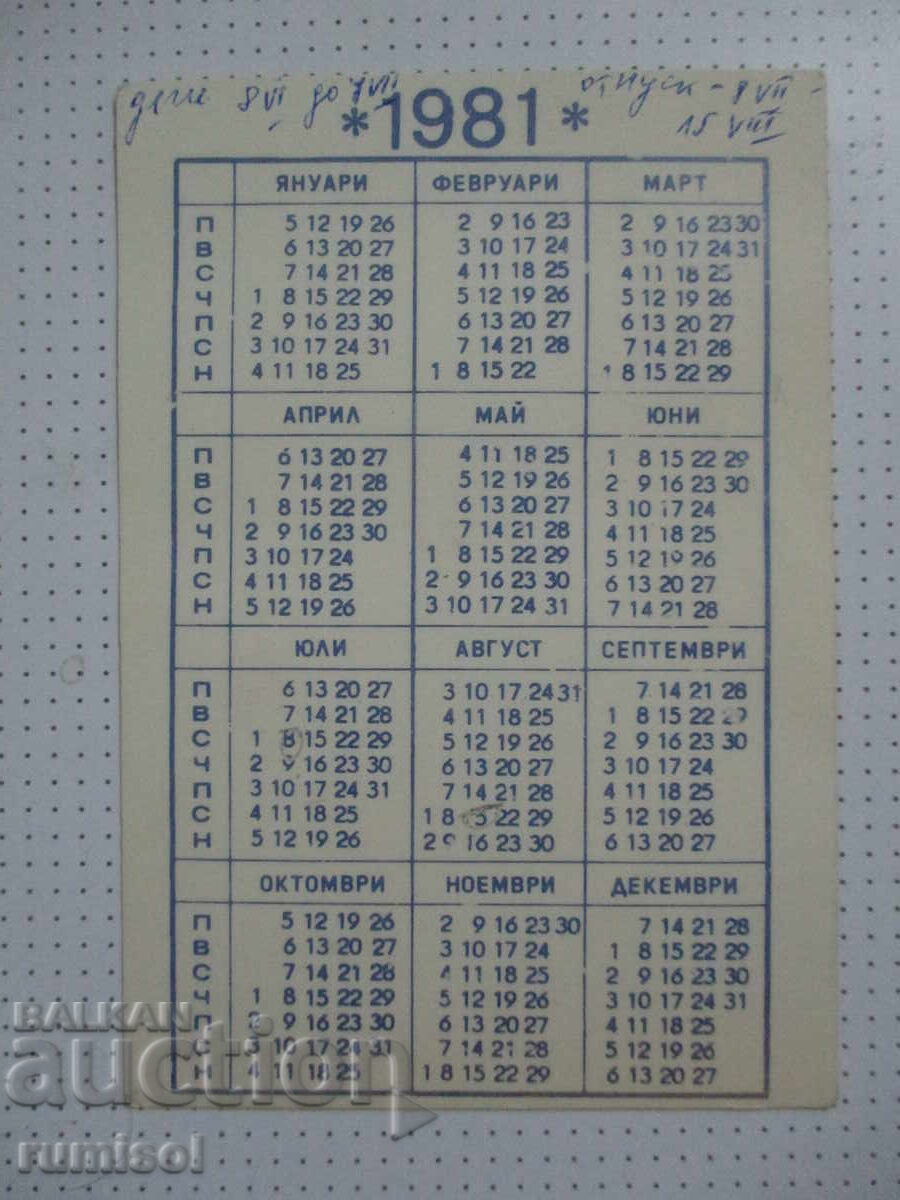 деж 8 VI до 7 VII отпуск - 8 VII -
15 VIII
*1981*
ЯНУАРИ ФЕВРУАРИ МАРТ
П 5 12 19 26 2 9 16 23 2 9 16 23 30
В 6 13 20 27 3 10 17 24 3 10 17 24 31
С 7 14 21 28 4 11 18 25 4 11 18 25
Ч 1 8 15 22 29 5 12 19 26 5 12 19 26
П 2 9 16 23 30 6 13 20 27 6 13 20 27
С 3 10 17 24 31 7 14 21 28 7 14 21 28
Н 4 11 18 25 1 8 15 22 1 8 15 22 29
АПРИЛ МАЙ ЮНИ
П 6 13 20 27 4 11 18 25 1 8 15 22 29
В 7 14 21 28 5 12 19 26 2 9 16 23 30
С 1 8 15 22 29 6 13 20 27 3 10 17 24
Ч 2 9 16 23 30 7 14 21 28 4 11 18 25
П 3 10 17 24 1 8 15 22 29 5 12 19 26
С 4 11 18 25 2 9 16 23 30 6 13 20 27
Н 5 12 19 26 3 10 17 24 31 7 14 21 28
ЮЛИ АВГУСТ СЕПТЕМВРИ
П 6 13 20 27 3 10 17 24 31 7 14 21 28
В 7 14 21 28 4 11 18 25 1 8 15 22 29
С 1 8 15 22 29 5 12 19 26 2 9 16 23 30
Ч 2 9 16 23 30 6 13 20 27 3 10 17 24
П 3 10 17 24 31 7 14 21 28 4 11 18 25
С 4 11 18 25 1 8 15 22 29 5 12 19 26
Н 5 12 19 26 2 9 16 23 30 6 13 20 27
ОКТОМВРИ НОЕМВРИ ДЕКЕМВРИ
П 5 12 19 26 2 9 16 23 30 7 14 21 28
В 6 13 20 27 3 10 17 24 1 8 15 22 29
С 7 14 21 28 4 11 18 25 2 9 16 23 30
Ч 1 8 15 22 29 5 12 19 26 3 10 17 24 31
П 2 9 16 23 30 6 13 20 27 4 11 18 25
С 3 10 17 24 31 7 14 21 28 5 12 19 26
Н 4 11 18 25 1 8 15 22 29 6 13 20 27
BALKAN
auction
rumisol